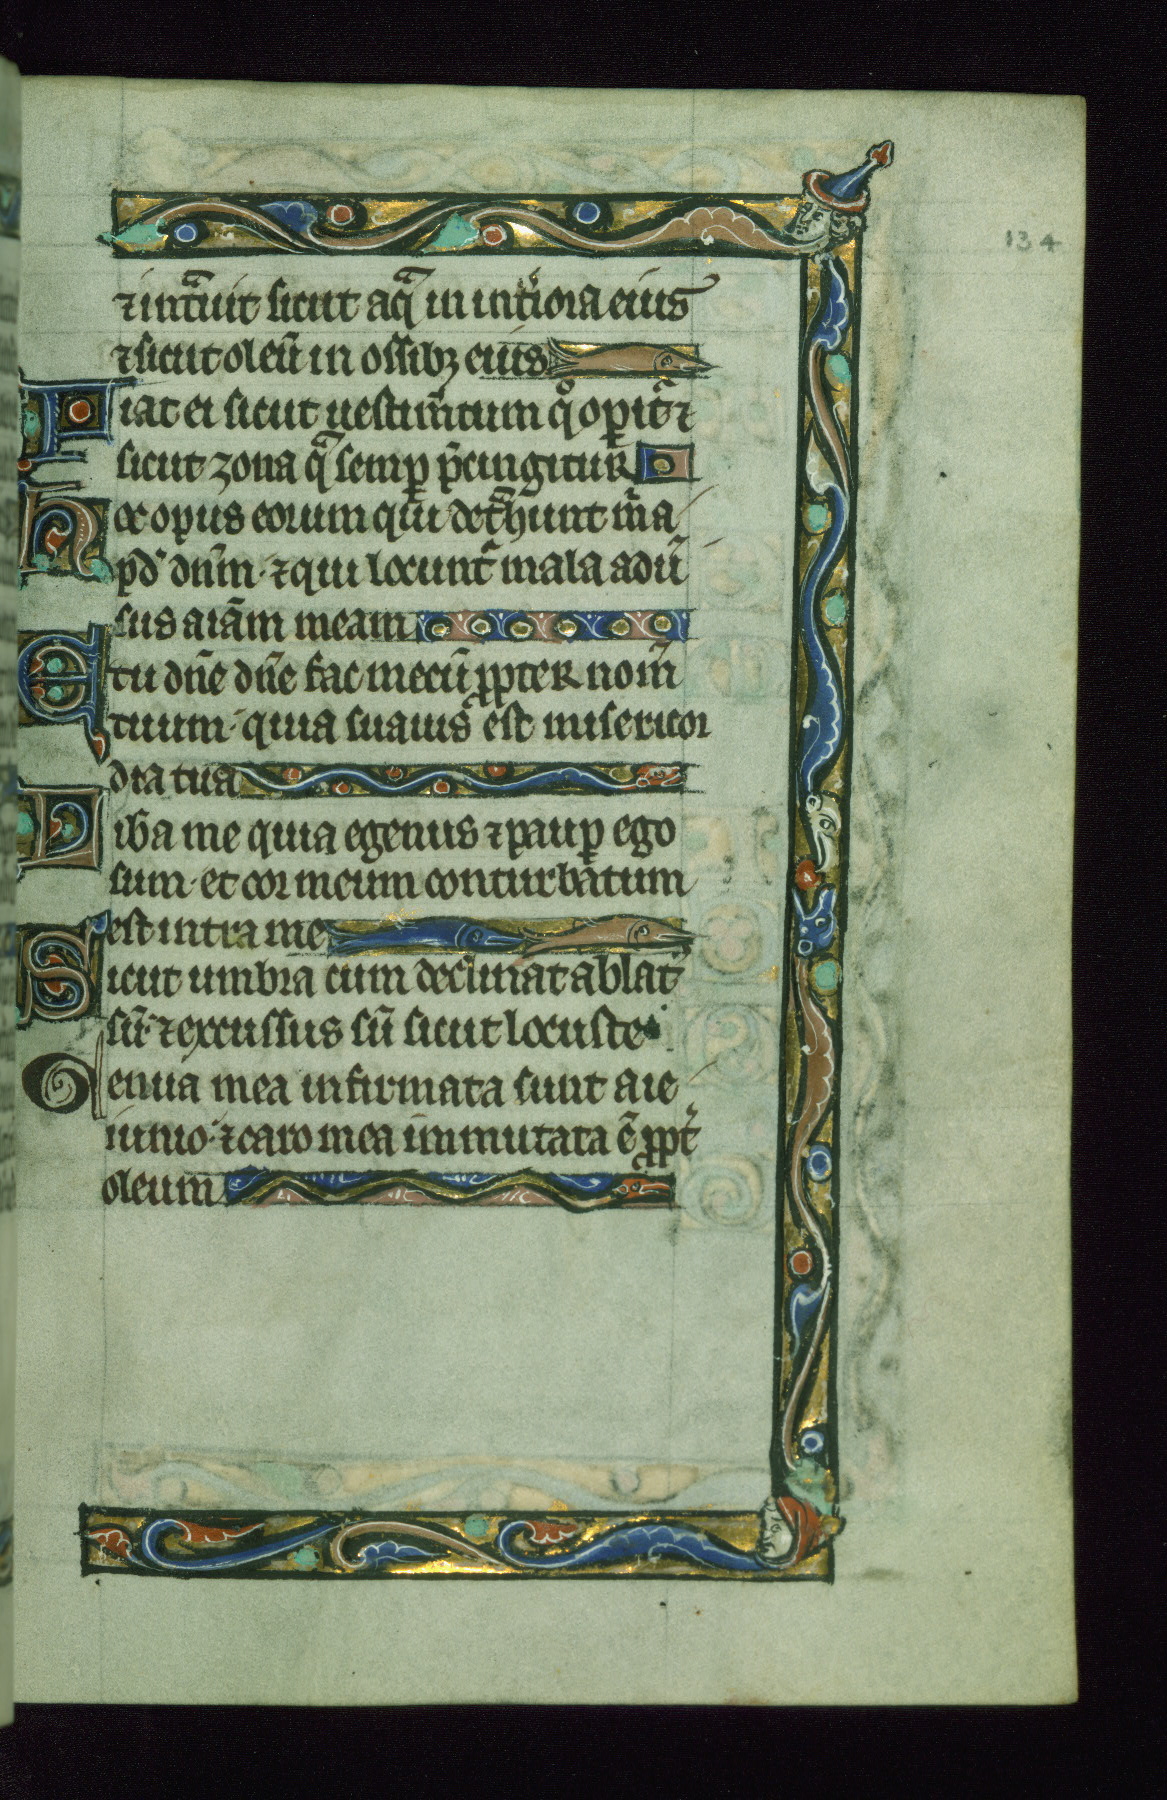 134
⁊ int͛uit sicut aq̃ in int̾iora eius
⁊ sicut oleū in ossibꝫ eius
Fiat ei sicut uestim̄tum qͦ oꝑit᷑ ⁊
sicut zona qͣ semꝑ p̄cingitur
Hoc opus eorum qui det͛hunt m̄ a
pd̾ dn̄m · ⁊ qui locunt᷑ mala adū
sus aīam meam
Et tu dn̄e dn̄e fac mecū ꝓpter nom̄
tuum · quia suauis est misericor
dia tua
Liba me quia egenus ⁊ pauꝑ ego
sum · et cor meum conturbatum
est intra me
Sicut umbra cum declinat ablat᷑
sū · ⁊ excussus sū sicut locuste
Genua mea infirmata sunt a ie
iunio · ⁊ caro mea immutata ē ꝓpt᷑
oleum